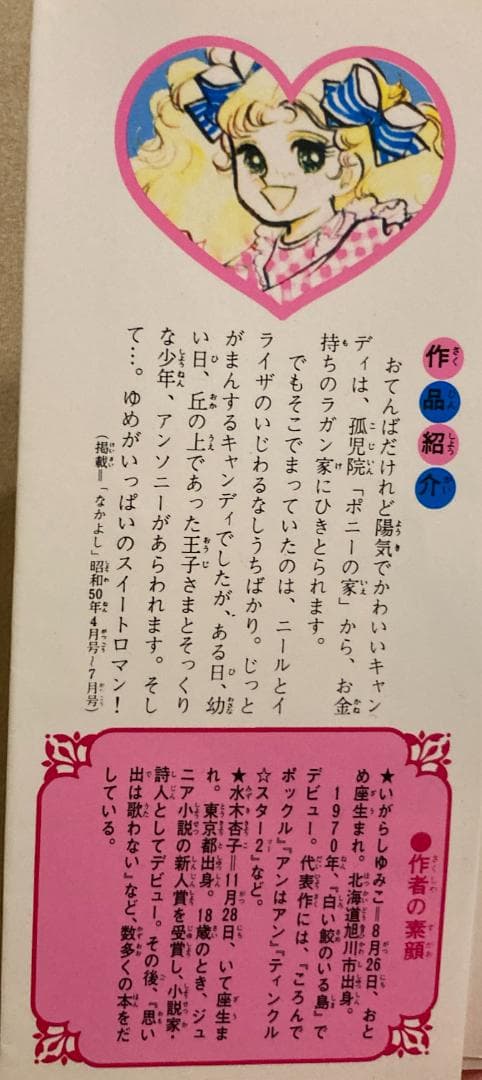 作品紹介
おてんばだけれど陽気でかわいいキャン
ディは、孤児院「ポニーの家」から、お金
持ちのラガン家にひきとられます。
でもそこでまっていたのは、ニールとイ
ライザのいじわるなしうちばかり。じっと
がまんするキャンディでしたが、ある日、幼
い日、丘の上であった王子さまとそっくり
な少年、アンソニーがあらわれます。そし
て…。ゆめがいっぱいのスイートロマン！
(掲載＝「なかよし」昭和50年4月号〜7月号)
●作者の素顔
★いがらしゆみこ＝8月26日、おと
め座生まれ。北海道旭川市出身。
1970年、『白い鮫のいる島』で
デビュー。代表作には、『ころんで
ポックル』『アンはアン』『ティンクル
☆スター2』など。
★水木杏子＝11月28日、いて座生ま
れ。東京都出身。18歳のとき、ジュ
ニア小説の新人賞を受賞し、小説家・
詩人としてデビュー。その後、『思い
出は歌わない』など、数多くの本をだ
している。